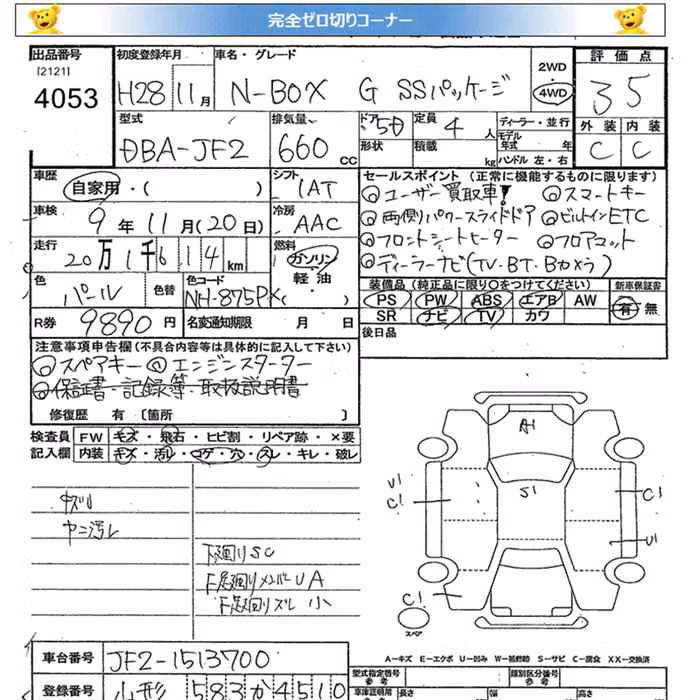 完全ゼロ切りコーナー
出品番号 初度登録年月 車名・グレード 評価点
[2121] 4053 H28 11月 N-BOX G SSパッケージ 2WD 4WD 3 5
型式 排気量 ドア 定員 ディーラー・並行 外装 内装
DBA-JF2 660 CC 5D 4人 形状 積載 kg モデル年式 年 ハンドル 左・右 C C
車歴 シフト セールスポイント (正常に機能するものに限ります)
自家用・( ) IAT ◎ユーザー買取車! ◎スマートキー
車検 冷房 ◎両側パワースライドドア ◎ビルトインETC
9年11月(20日) AAC ◎フロントシートヒーター ◎フロアマット
走行 燃料 ◎ディーラーナビ(TV・BT・Bカメラ)
20万1千614km ガソリン 軽油
色 色替 色コード 装備品 (純正品に限り○をつけてください) 新車保証書
パール NH-875P ( ) PS PW ABS エアB AW 有 無
SR ナビ TV カワ
R券 9890円 名変通知期限 月 日 後日品
注意事項申告欄(不具合内容等は具体的に記入して下さい)
◎スペアキー ◎エンジンスターター
◎保証書・記録簿・取扱説明書
修復歴 有 〔箇所 〕
検査員 FW キズ・飛石・ヒビ割・リペア跡・×要
記入欄 内装 キズ・汚レ・コゲ・穴・スレ・キレ・破レ
キズU
ヤニ汚レ
下廻りSC
下廻りメンバーUA
下廻りズレ 小
A1
S1
U1
C1
C1
U1
C1
スペア
A-キズ E-エクボ U-凹み W-補修跡 S-サビ C-腐食 XX-交換済
車台番号 JF2-1513700 型式指定番号 参考 類別区分番号 参考
登録番号 山形 583 か 4510 車体証明用 参考 長さ 幅 高さ